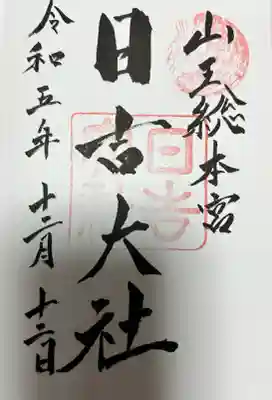 山王総本宮
日吉大社
令和五年 十二月 十六日